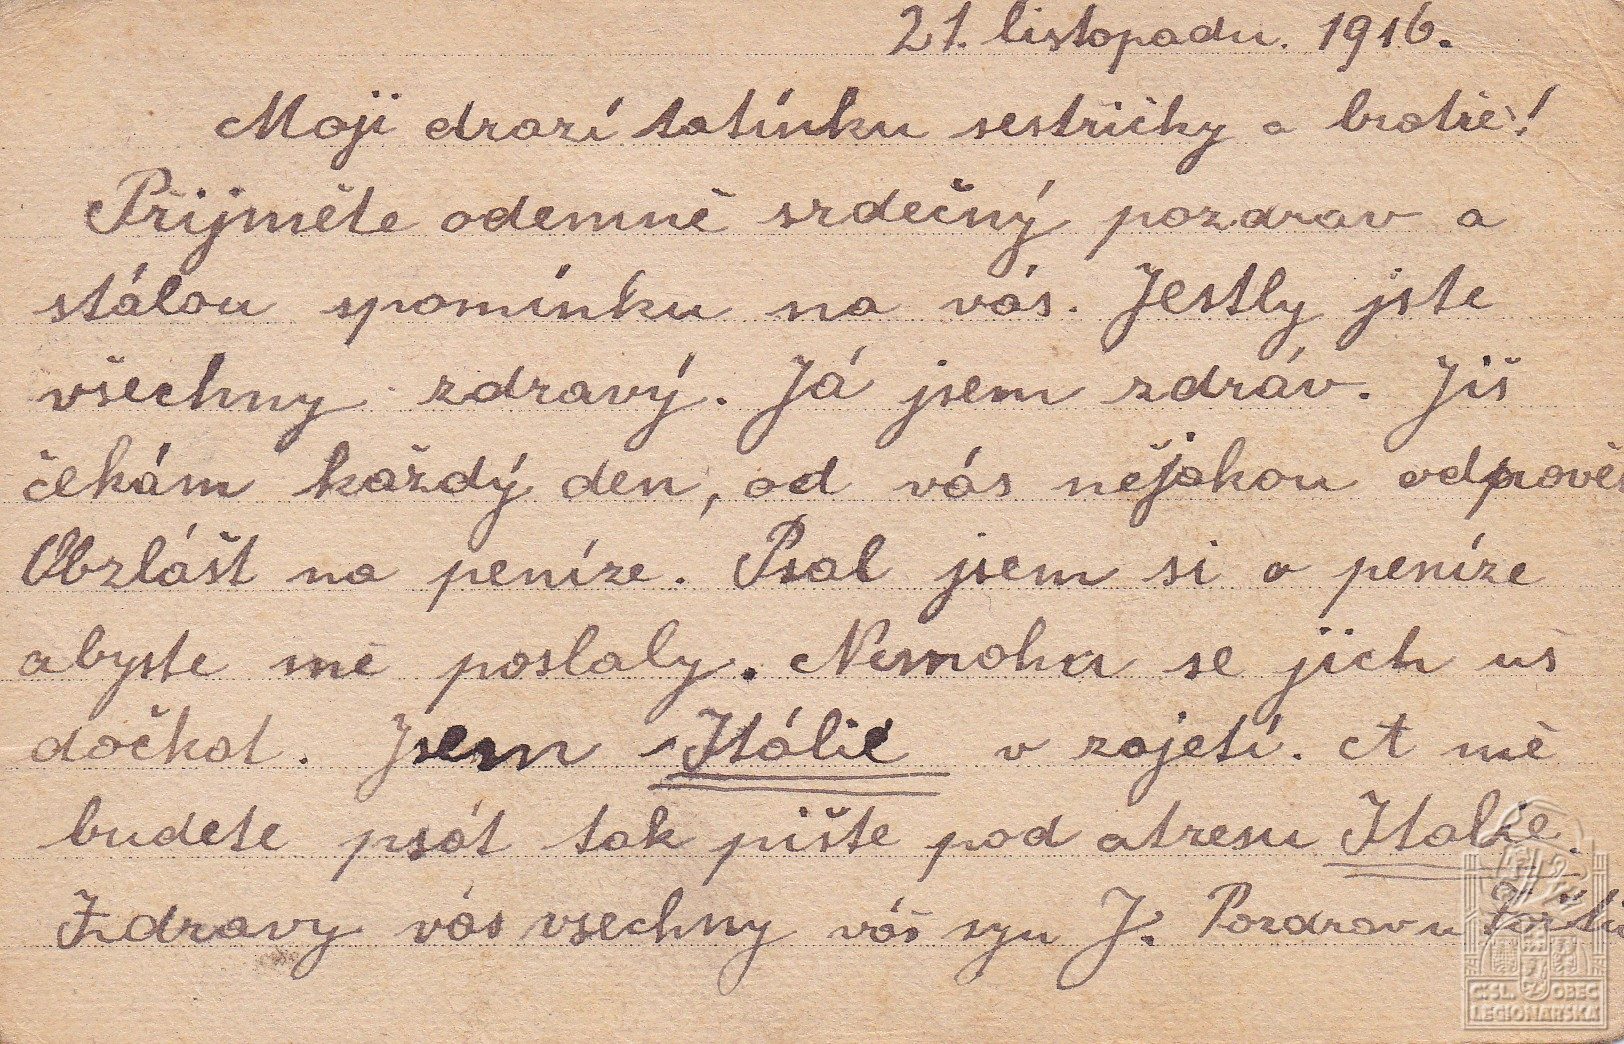 21. listopadu. 1916.
Moji drazí tatínku sestřičky a bratře!
Přijměte odemně srdečný pozdrav a
stálou spomínku na vás. Jestly jste
všechny zdravý. Já jsem zdráv. Jiš
čekám každý den, od vás nějakou odpově
Obzlášt na peníze. Psal jsem si o peníze
abyste mě poslaly. Nemohu se jich uš
dočkat. Jsem Itálie v zajetí. A mě
budete psát tak pište pod atresu Italie.
Zdravy vás všechny váš syn J. Pozdravu
ČSL. OBEC
LEGIONÁŘSKÁ